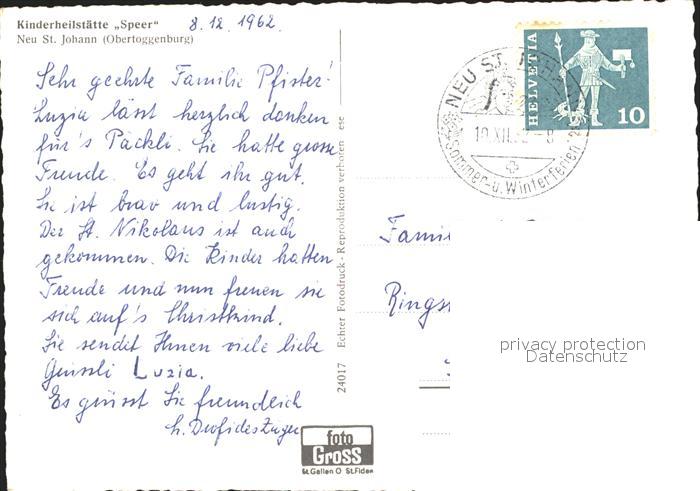 Kinderheilstätte „Speer"
Neu St. Johann (Obertoggenburg)
8.12.1962.
Sehr geehrte Familie Pfister!
Luzia lässt herzlich danken
für's Päckli. Sie hatte grosse
Freude. Es geht ihr gut.
Sie ist brav und lustig.
Der St. Nikolaus ist auch
gekommen. Die Kinder hatten
Freude und nun freuen sie
sich auf's Christkind.
Sie sendet Ihnen viele liebe
Grüssli Luzia.
Es grüsst Sie freundlich
24017 Echter Fotodruck - Reproduktion verboten ese
foto
GROSS
St.Gallen O St.Fiden
NEU ST.
10.XII.
Sommer-u. Winterferien
HELVETIA
10
Famil
Rings
privacy protection
Datenschutz